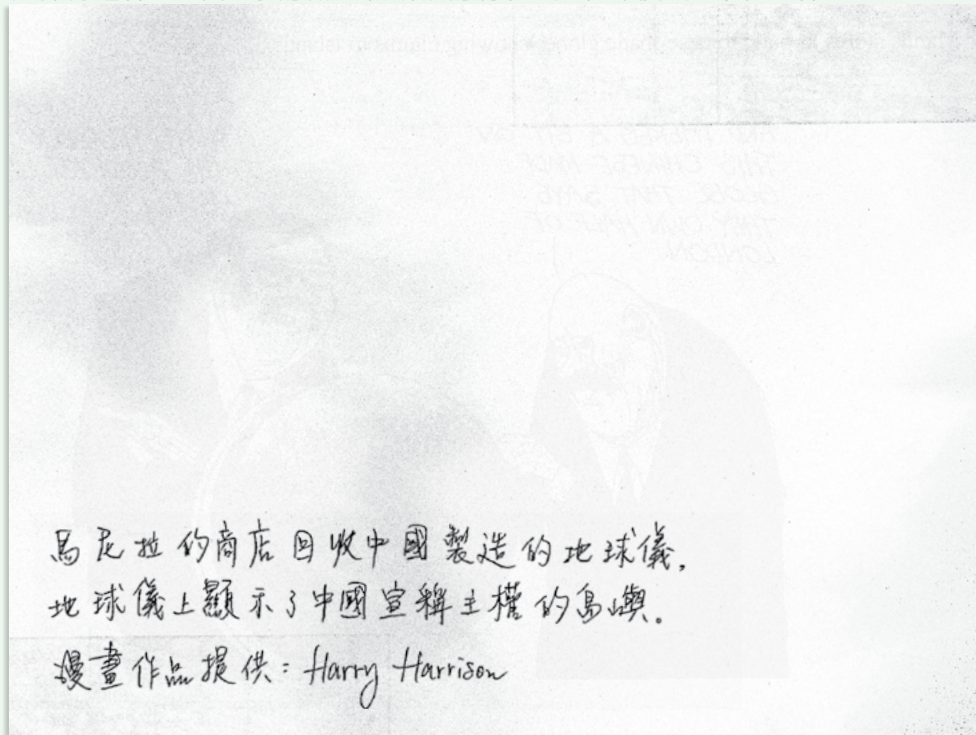 馬尼拉的商店回收中國製造的地球儀,
地球儀上顯示了中國宣稱主權的島嶼。
漫畫作品提供：Harry Harrison